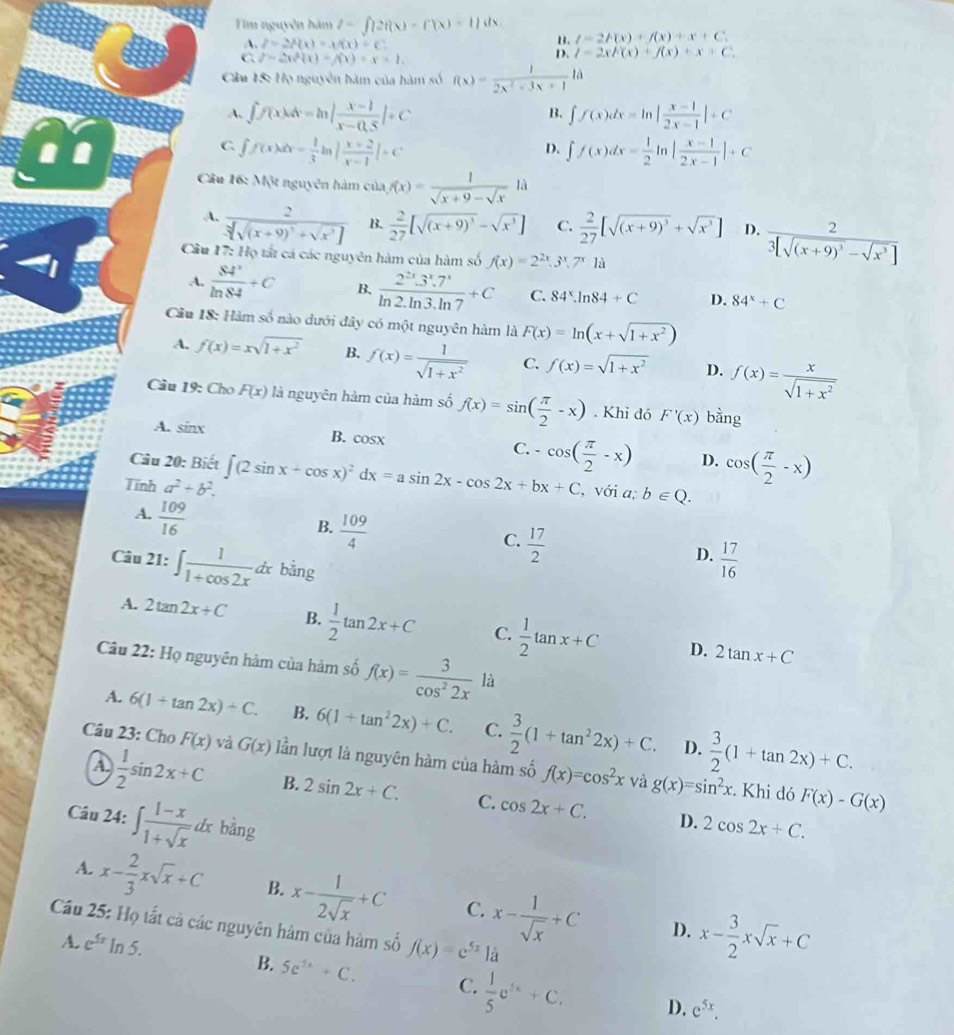 Tìm nguyên hàm I = ∫[2f(x) + f'(x) + 1] dx.
A. I = 2F(x) + xf(x) + C. B. I = 2F(x) + f(x) + x + C.
C. I = 2xF(x) + f(x) + x + 1. D. I = 2xF(x) + f(x) + x + C.
Câu 15: Họ nguyên hàm của hàm số f(x) = 1/(2x² - 3x + 1) là
A. ∫f(x)dx = ln|(x-1)/(x-0,5)| + C B. ∫f(x)dx = ln|(x-1)/(2x-1)| + C
C. ∫f(x)dx = 1/3 ln|(x+2)/(x-1)| + C D. ∫f(x)dx = 1/2 ln|(x-1)/(2x-1)| + C
Câu 16: Một nguyên hàm của f(x) = 1/(√(x+9) - √x) là
A. 2/(3[√((x+9)³) + √(x³)]) B. 2/27 [√((x+9)³) - √(x³)] C. 2/27 [√((x+9)³) + √(x³)] D. 2/(3[√((x+9)³) - √(x³)])
Câu 17: Họ tất cả các nguyên hàm của hàm số f(x) = 2²ˣ.3ˣ.7ˣ là
A. 84ˣ/ln84 + C B. 2²ˣ.3ˣ.7ˣ/(ln 2.ln 3.ln 7) + C C. 84ˣ.ln84 + C D. 84ˣ + C
Câu 18: Hàm số nào dưới đây có một nguyên hàm là F(x) = ln(x + √(1+x²))
A. f(x) = x√(1+x²) B. f(x) = 1/√(1+x²) C. f(x) = √(1+x²) D. f(x) = x/√(1+x²)
Câu 19: Cho F(x) là nguyên hàm của hàm số f(x) = sin(π/2 - x) . Khi đó F'(x) bằng
A. sinx B. cosx C. - cos(π/2 - x) D. cos(π/2 - x)
Câu 20: Biết ∫(2 sin x + cos x)² dx = a sin 2x - cos 2x + bx + C, với a; b ∈ Q.
Tính a² + b².
A. 109/16 B. 109/4 C. 17/2 D. 17/16
Câu 21: ∫1/(1 + cos 2x) dx bằng
A. 2 tan 2x + C B. 1/2 tan 2x + C C. 1/2 tan x + C D. 2 tan x + C
Câu 22: Họ nguyên hàm của hàm số f(x) = 3/cos² 2x là
A. 6(1 + tan 2x) + C. B. 6(1 + tan² 2x) + C. C. 3/2 (1 + tan² 2x) + C. D. 3/2 (1 + tan 2x) + C.
Câu 23: Cho F(x) và G(x) lần lượt là nguyên hàm của hàm số f(x)=cos²x và g(x)=sin²x. Khi dó F(x) - G(x)
A. 1/2 sin 2x + C B. 2 sin 2x + C. C. cos 2x + C. D. 2 cos 2x + C.
Câu 24: ∫(1-x)/(1+√x) dx bằng
A. x - 2/3 x√x + C B. x - 1/(2√x) + C C. x - 1/√x + C D. x - 3/2 x√x + C
Câu 25: Họ tất cả các nguyên hàm của hàm số f(x) = e⁵ˣ là
A. e⁵ˣ ln 5. B. 5e⁵ˣ + C. C. 1/5 e⁵ˣ + C. D. e⁵ˣ.